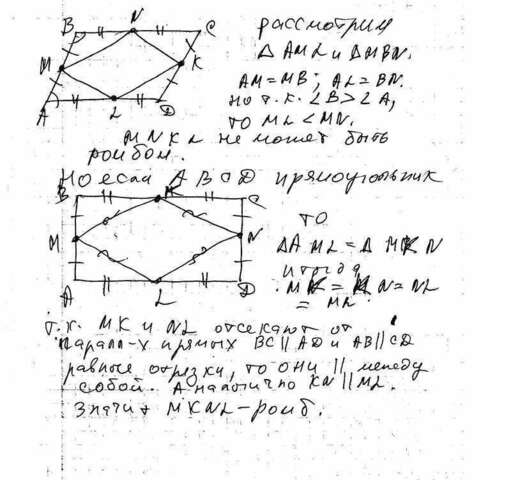 B N C
M K
A L D
рассмотрим
△ AML и △MBN.
AM=MB; AL=BN.
но т.к. ∠B>∠A,
то ML<MN.
MNKL не может быть
ромбом.
Но если ABCD прямоугольник
B K C
M N
A L D
то
△AML = △ MKN
и тогда
MK = KN = NL
= ML.
т.к. MK и NL отсекают от
паралл-х прямых BC∥AD и AB∥CD
равные отрезки, то они ∥ между
собой. Аналогично KN∥ML.
Значит MKNL–ромб.